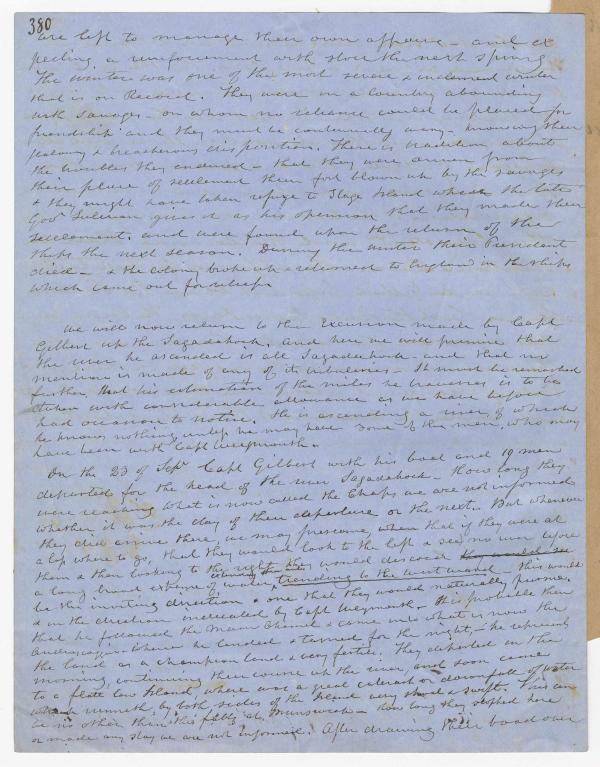 380
are left to manage their own affairs - and ex
pecting a reinforcement with stores the next spring
The winter was one of the most severe & inclement winter
that is on Record. They were in a Country abounding
with savages - on whom no reliance could be placed for
friendship and they must be continually wary - knowing their
jealousy & treacherous disposition. There is tradition about
the troubles they endured - that they were driven from
their place of settlement their fort blown up by the savages
& they might have taken refuge to Stage Island which the late
Govr Sulivan gives it as his opennion that they made their
settlement, and were found upon the return of the
ships the next season. During the winter their President
died - & the Colony broke up & returned to England in the ships
which came out for relief.
We will now return to the Excursion made by Capt
Gilbert up the Sagadahock, and here we will premise that
the river he ascended is all Sagadahock - and that no
mention is made of any of its tributaries - It must be remarked
further, that his estimation of the miles he traverses is to be
taken with considerable allowance as we have before
had occasion to notice. He is ascending a river, of which
he knows nothing, unless he may have some of the men, who may
have been with Capt Weymouth.
On the 23 of Sepr Capt Gilbert with his boat and 19 men
departed for the head of the river Sagadahock - How long they
were reaching what is now called the Chops we are not informed
whether it was the day of their departure or the next. But whenever
they did arrive there, we may presume, when that if they were at
a loss where to go, that they would look to the left & see no river before
them & then looking to the right they would discover
a long broad volume of water trending to the westward - this would
be the inviting direction & one that they would naturally pursue.
& in the direction indicated by Capt Weymouth - It is probable then
that he followed the Main Channel & came into what is now the
Androscoggin where he landed & tarried for the night, - he represents
the land as a champion land & very fertile. They departed in the
morning, continuing their course up the river, and soon came
to a flatt low Island, where was a great cataract or downfall of water
which runneth by both sides of the Island very shoal & swift. This can
be no other than the falls at Brunswick - how long they stopped here
or made any stay we are not informed. After drawing their boat over